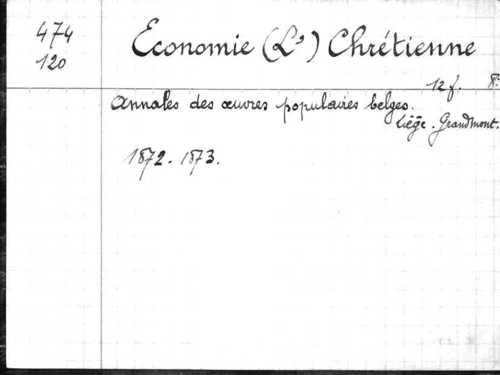 474
120
Economie (L') Chrétienne
12 f. 8°
Annales des œuvres populaires belges.
Liége. Grandmont.
1872 - 1873.